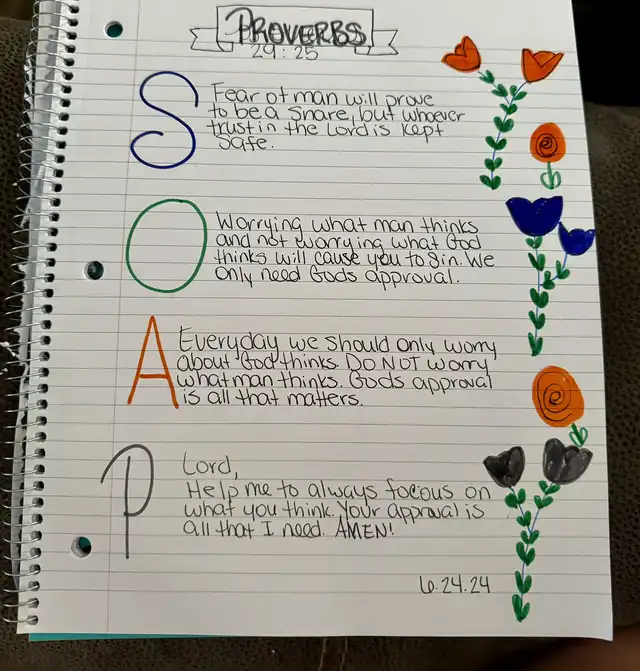 PROVERBS
29:25
S
Fear of man will prove
to be a snare, but whoever
trust in the Lord is kept
safe.
O
Worrying what man thinks
and not worrying what God
thinks will cause you to sin. We
only need Gods approval.
A
Everyday we should only worry
about God thinks. DO NOT worry
what man thinks. Gods approval
is all that matters.
P
Lord,
Help me to always focous on
what you think. Your approval is
all that I need. AMEN!
6.24.24